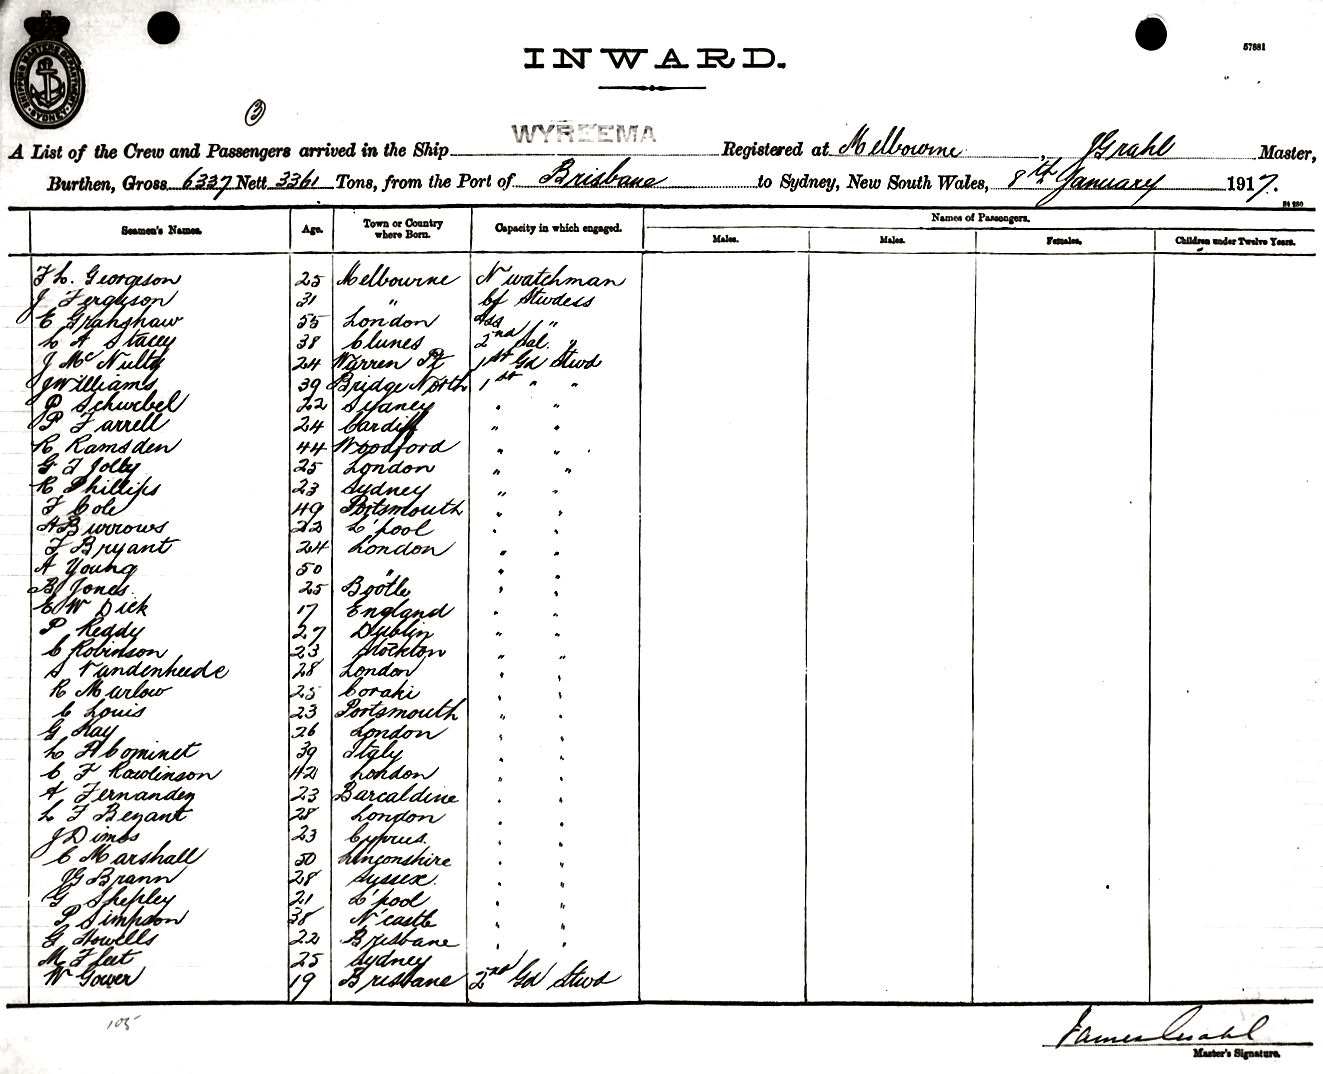 SHIPPING MASTERS DEPARTMENT SYDNEY
INWARD.
57881
3
A List of the Crew and Passengers arrived in the Ship WYREEMA Registered at Melbourne, J Grahl Master,
Burthen, Gross 6337 Nett 3361 Tons, from the Port of Brisbane to Sydney, New South Wales, 8th January 1917.
Seamen's Names. Age. Town or Country where Born. Capacity in which engaged. Names of Passengers.
Males. Males. Females. Children under Twelve Years.
F L. Georgeson 25 Melbourne N watchman
J Ferguson 31 " Cf Stwdess
E Granshaw 55 London Ass "
L A Stacey 38 Clunes 2nd Sal. "
J McNulty 24 Warren Pt 1st Gd Stwd
J Williams 39 Bridge North 1st " "
P Schwebel 22 Sydney " "
P Farrell 24 Cardiff " "
R Ramsden 44 Woodford " "
G F Jolly 25 London " "
R Phillips 23 Sydney " "
F Cole 49 Portsmouth " "
A Burrows 22 L'pool " "
F Bryant 24 London " "
A Young 50 " " "
B Jones 25 Bootle " "
E W Dick 17 England " "
P Reddy 27 Dublin " "
C Robinson 23 Stockton " "
S Vandenheede 28 London " "
R Marlow 25 Coraki " "
C Louis 23 Portsmouth " "
G Kay 26 London " "
L Abominet 39 Italy " "
C F Rawlinson 42 London " "
A Fernandez 23 Barcaldine " "
L F Benant 28 London " "
J Dimos 23 Cyprus. " "
C Marshall 50 Linconshire " "
J G Brann 28 Sussex. " "
G Shepley 21 L'pool " "
P Simpson 38 N'castle " "
G Howells 22 Brisbane " "
M Fleet 25 Sydney
W Gower 19 Brisbane 2nd Gd Stwd
105
James Grahl
Master's Signature.